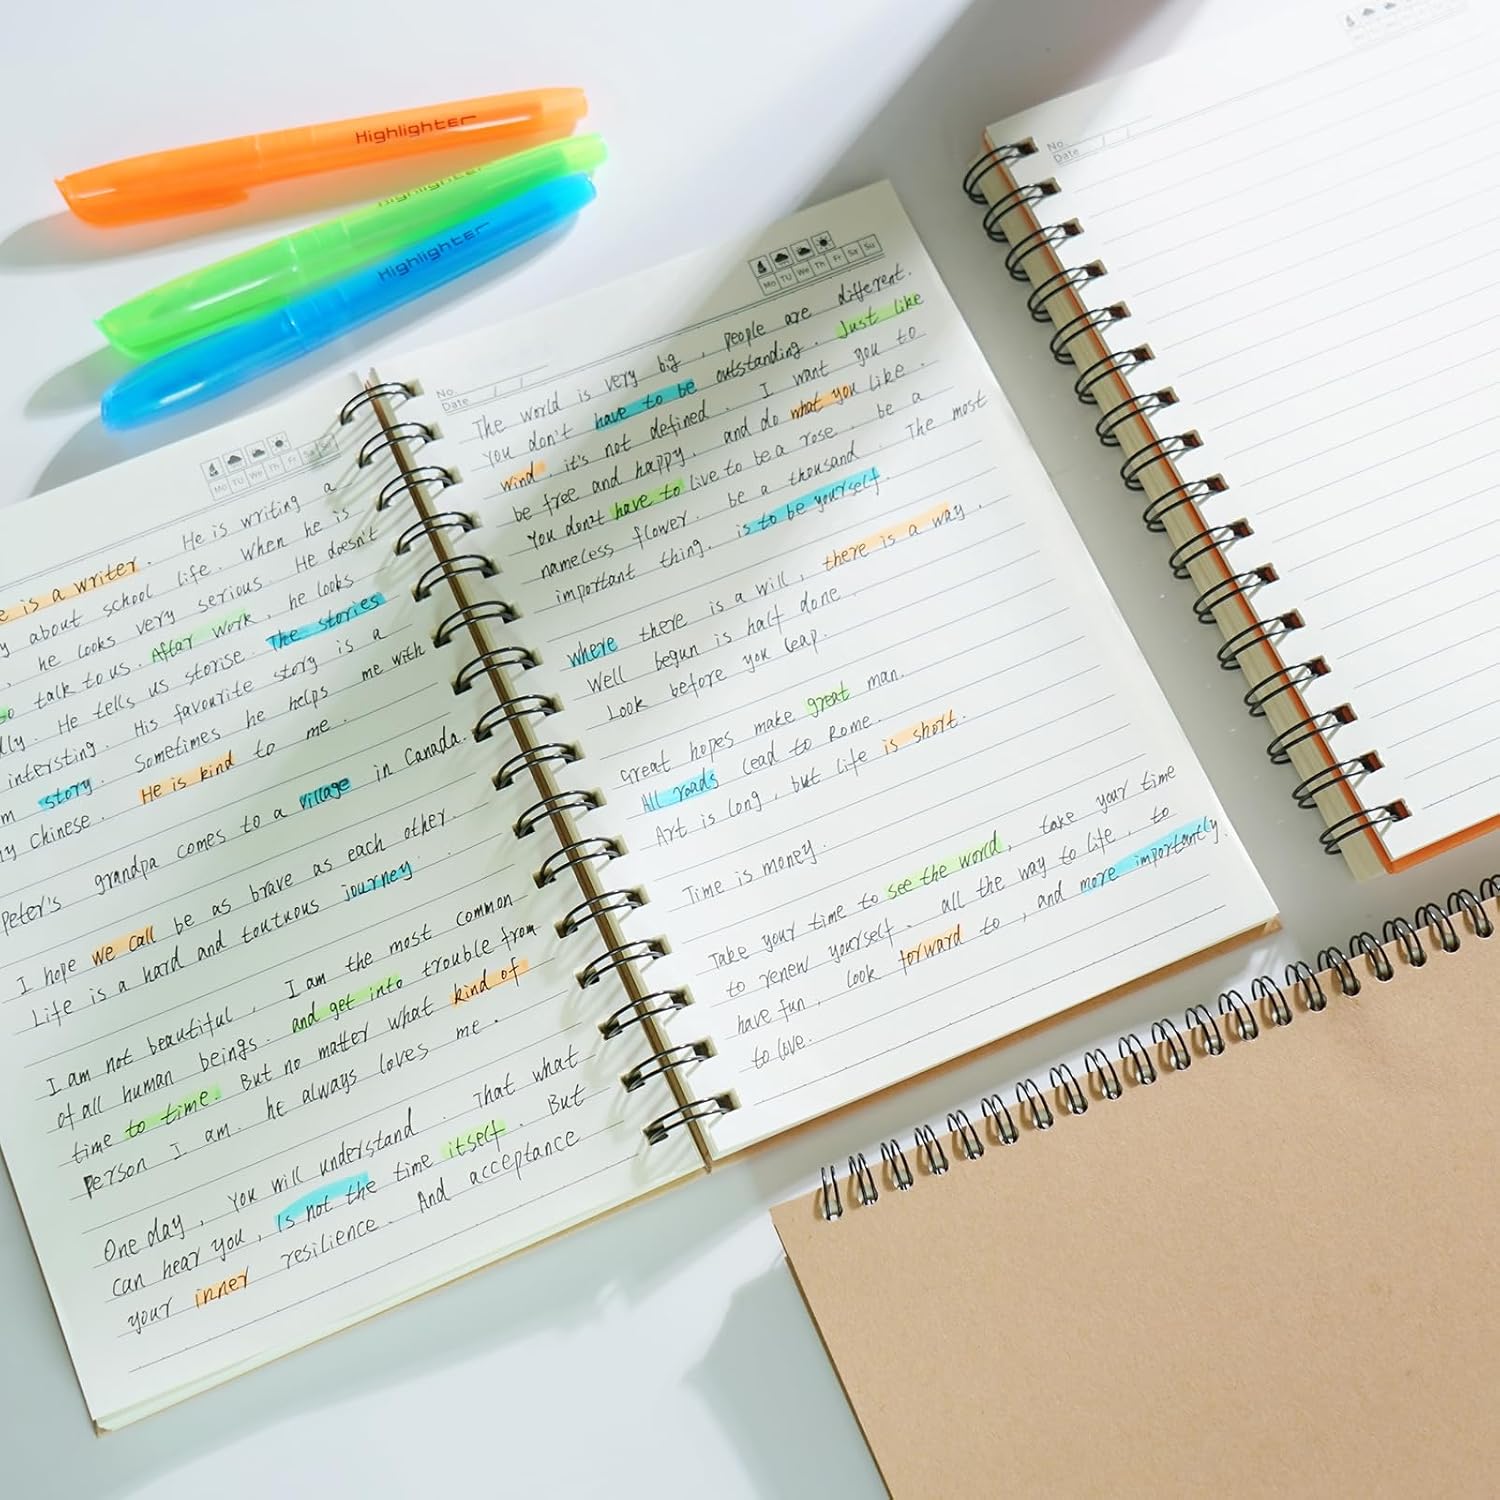 Highlighter
Highlighter
Highlighter
Mo TU We Th Fr Sa Su
e is a writer. He is writing a
y about school life. When he is
, he looks very serious. He doesn't
so talk to us. After work, he looks
lly. He tells us storise. The stories
intersting. His favourite story is a
m story. Sometimes he helps me with
ny Chinese. He is kind to me.
Peter's grandpa comes to a village in Canada.
I hope we call be as brave as each other.
Life is a hard and toutuous journey.
I am not beautiful, I am the most common
of all human beings. and get into trouble from
time to time. But no matter what kind of
person I am. he always loves me.
One day, you will understand. That what
can hear you, is not the time itself. But
your inner resilience. And acceptance
No.
Date / /
Mo TU We Th Fr Sa Su
The world is very big, people are different.
You don't have to be outstanding. Just like
wind, it's not defined. I want you to
be free and happy, and do what you like.
You don't have to live to be a rose. be a
nameless flower. be a thousand. The most
important thing. is to be yourself.
where there is a will, there is a way.
Well begun is half done.
Look before you leap.
Great hopes make great man.
All roads lead to Rome.
Art is long, but life is short.
Time is money.
Take your time to see the world, take your time
to renew yourself. all the way to life, to
have fun, look forward to, and more importantly.
to love.
No.
Date / /